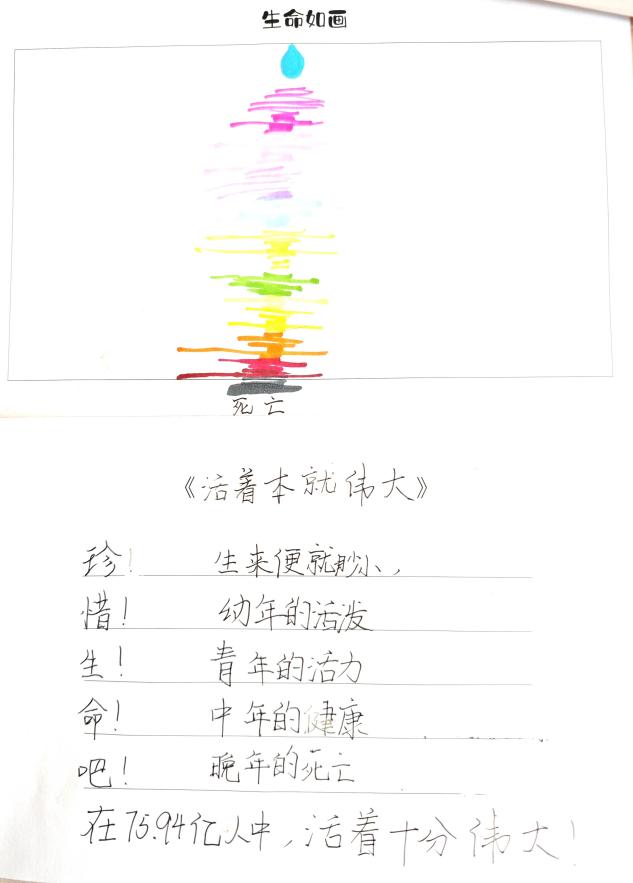 生命如画
死亡
《活着本就伟大》
珍！ 生来便就眇小，
惜！ 幼年的活泼
生！ 青年的活力
命！ 中年的健康
吧！ 晚年的死亡
在75.94亿人中，活着十分伟大！